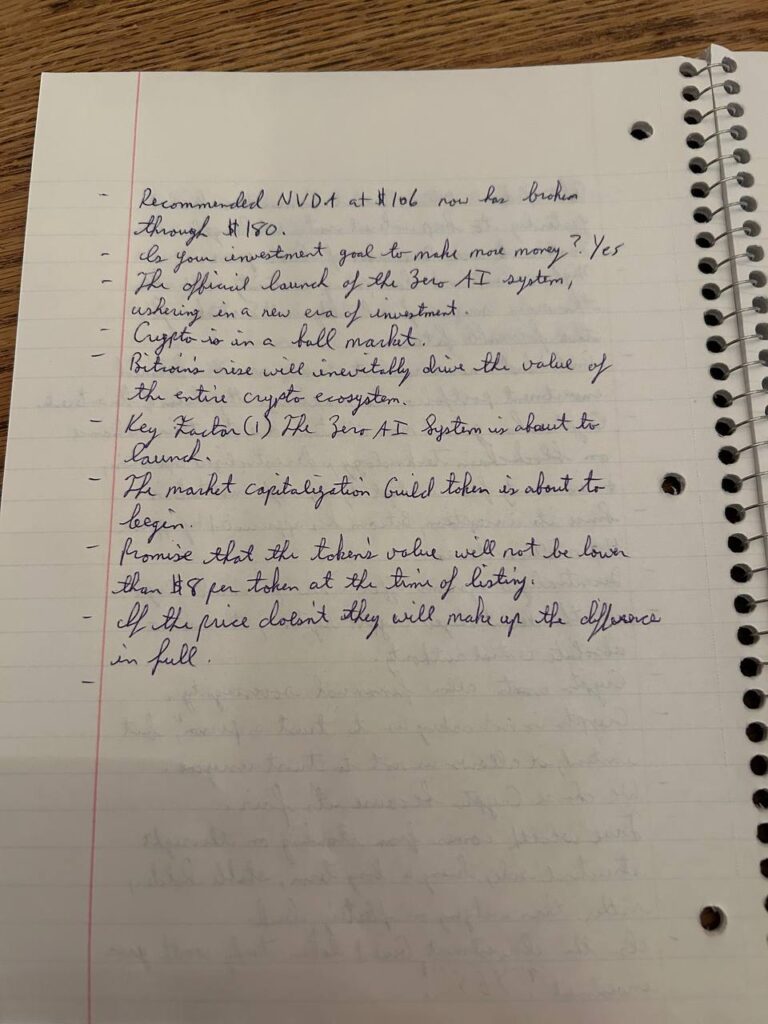 - Recommended NVDA at $106 now has broken
through $180.
- Is your investment goal to make more money? Yes
- The official launch of the Zero AI system,
ushering in a new era of investment.
- Crypto is in a bull market.
- Bitcoin's rise will inevitably drive the value of
the entire crypto ecosystem.
- Key Factor (1) The Zero AI System is about to
launch.
- The market capitalization Guild token is about to
begin.
- Promise that the token's value will not be lower
than $8 per token at the time of listing.
- If the price doesn't they will make up the difference
in full.
-